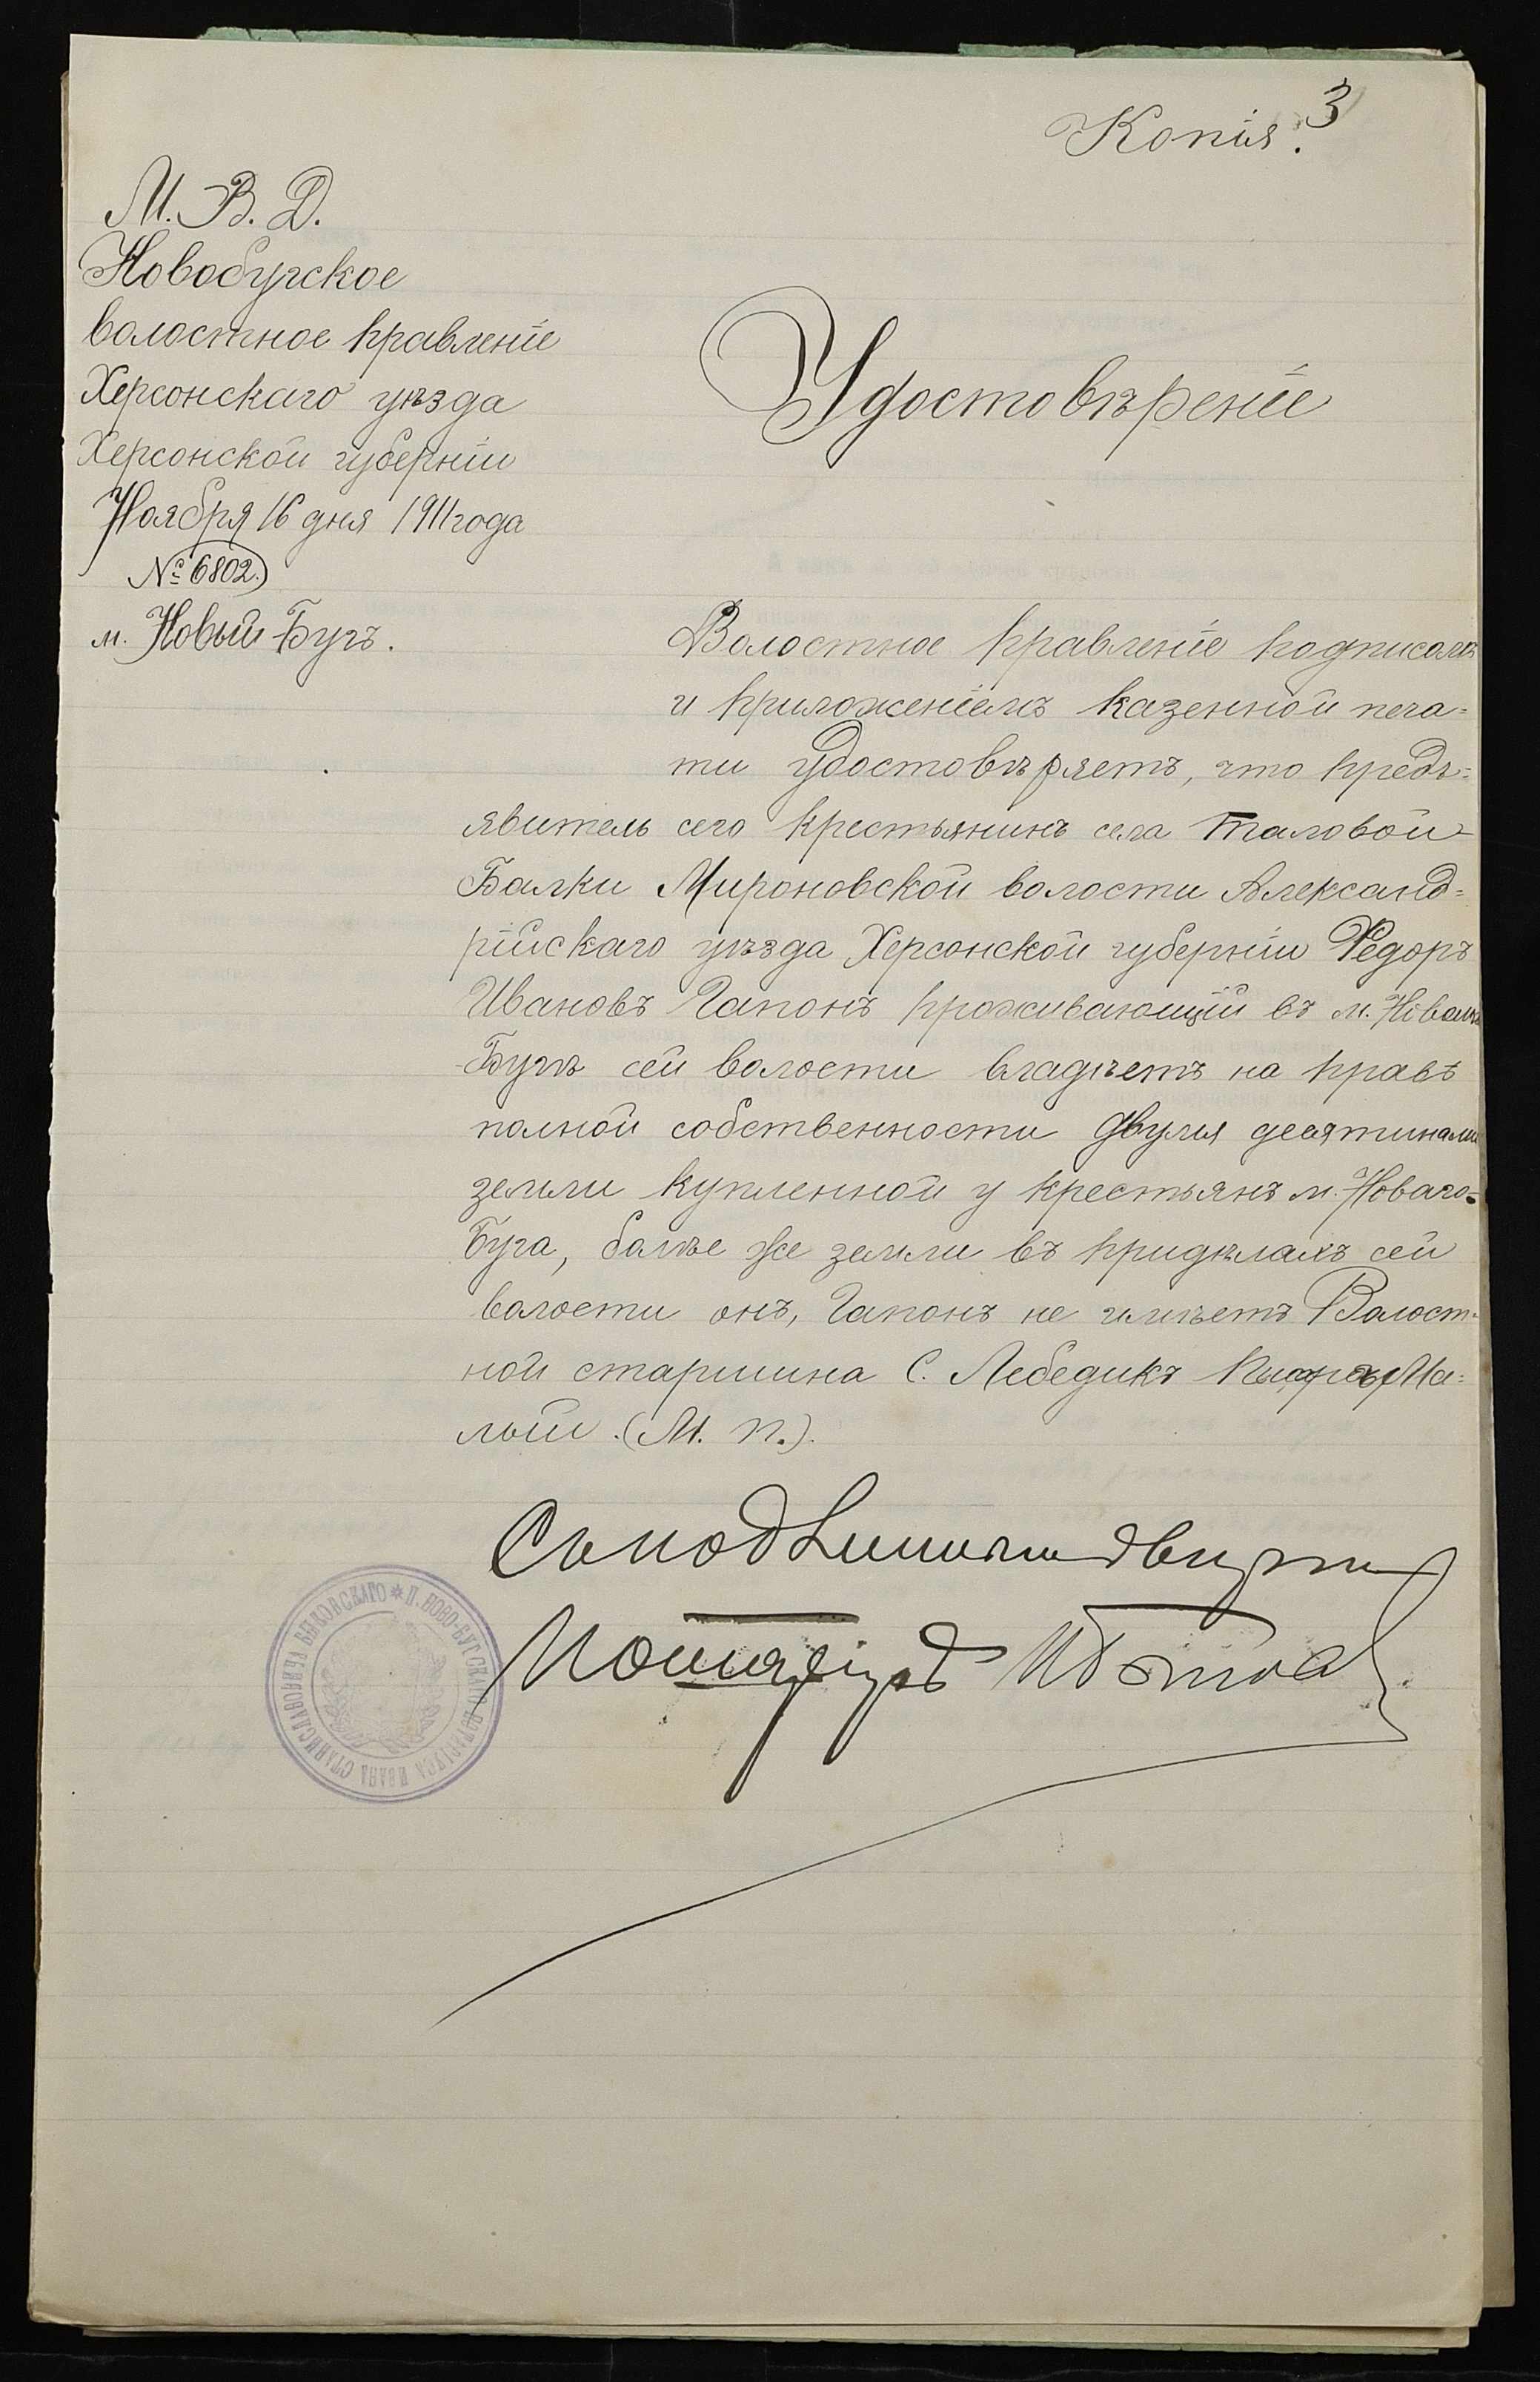 3
Копія.
М. В. Д.
Новобугское
волостное правленіе
Херсонскаго уѣзда
Херсонской губерніи
Ноября 16 дня 1911 года
№ 6802.
м. Новый-Бугъ.
Удостовѣреніе
Волостное правленіе подписомъ
и приложеніемъ казенной печа=
ти удостовѣряетъ, что предъ=
явитель сего крестьянинъ села Таловой-
Балки Мироновской волости Александ=
рійскаго уѣзда Херсонской губерніи Федоръ
Ивановъ Гапонъ проживающій въ м. Новомъ
Бугѣ сей волости владѣетъ на правѣ
полной собственности двумя десятинами
земли купленной у крестьянъ м. Новаго=
Буга, болѣе же земли въ придѣлахъ сей
волости онъ, Гапонъ не имѣетъ Волост=
ной старшина С. Лебедикъ Писарь Ма=
лый. (М. п.).
Съ подлиннымъ вѣрно
Нотаріусъ
* И. НОВО-БУГСКАГО НОТАРІУСА ИВАНА СТАНИСЛАВОВИЧА